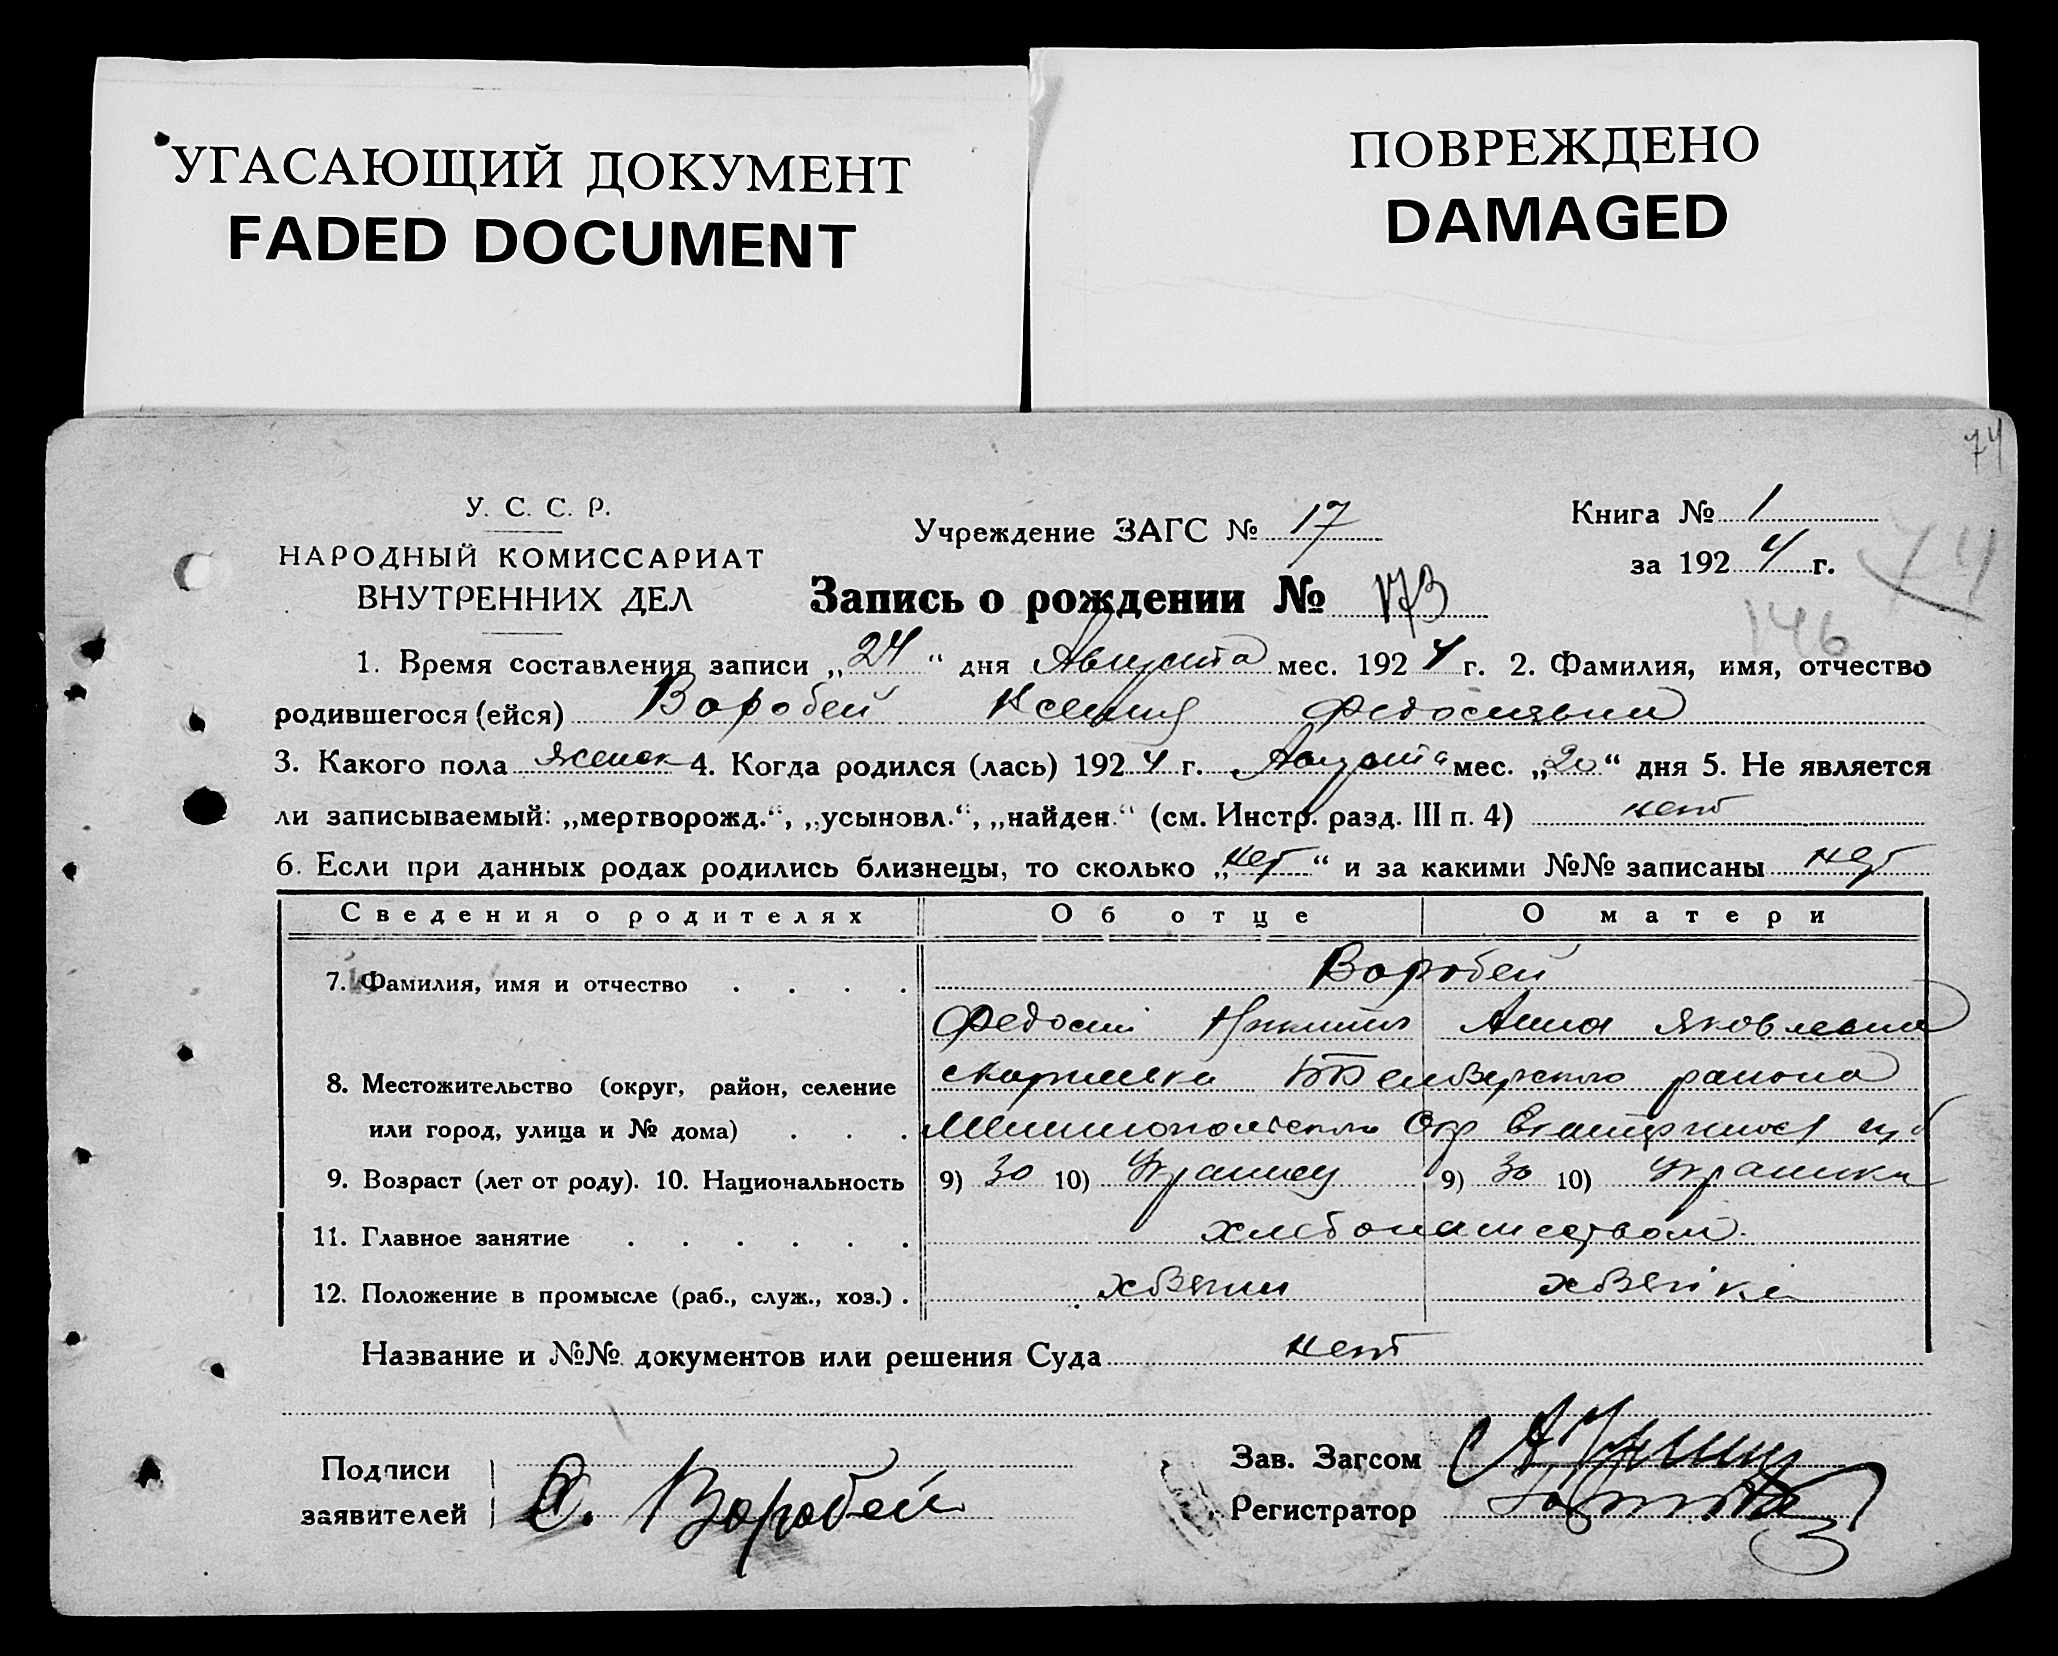 УГАСАЮЩИЙ ДОКУМЕНТ
FADED DOCUMENT
ПОВРЕЖДЕНО
DAMAGED
74
У. С. С. Р.
НАРОДНЫЙ КОМИССАРИАТ
ВНУТРЕННИХ ДЕЛ
Учреждение ЗАГС № 17
Книга № 1
за 1924 г.
74
Запись о рождении № 173
146
1. Время составления записи „24“ дня Августа мес. 1924 г. 2. Фамилия, имя, отчество
родившегося (ейся) Воробей Ксения Федосиевна
3. Какого пола женск 4. Когда родился (лась) 1924 г. Августа мес. „20“ дня 5. Не является
ли записываемый: „мертворожд.“, „усыновл.“, „найден.“ (см. Инстр. разд. III п. 4) нет
6. Если при данных родах родились близнецы, то сколько „нет“ и за какими №№ записаны нет
Сведения о родителях Об отце О матери
7. Фамилия, имя и отчество . . . . Воробей
Федосий Никит Анна Яковлевна
8. Местожительство (округ, район, селение района
или город, улица и № дома) . . . Окр губ
9. Возраст (лет от роду). 10. Национальность 9) 30 10) Украинец 9) 30 10) Украинка
11. Главное занятие . . . . . . хлебопашеством.
12. Положение в промысле (раб., служ., хоз.) . хозяин хозяйка
Название и №№ документов или решения Суда нет
Подписи
заявителей Воробей
Зав. Загсом
Регистратор